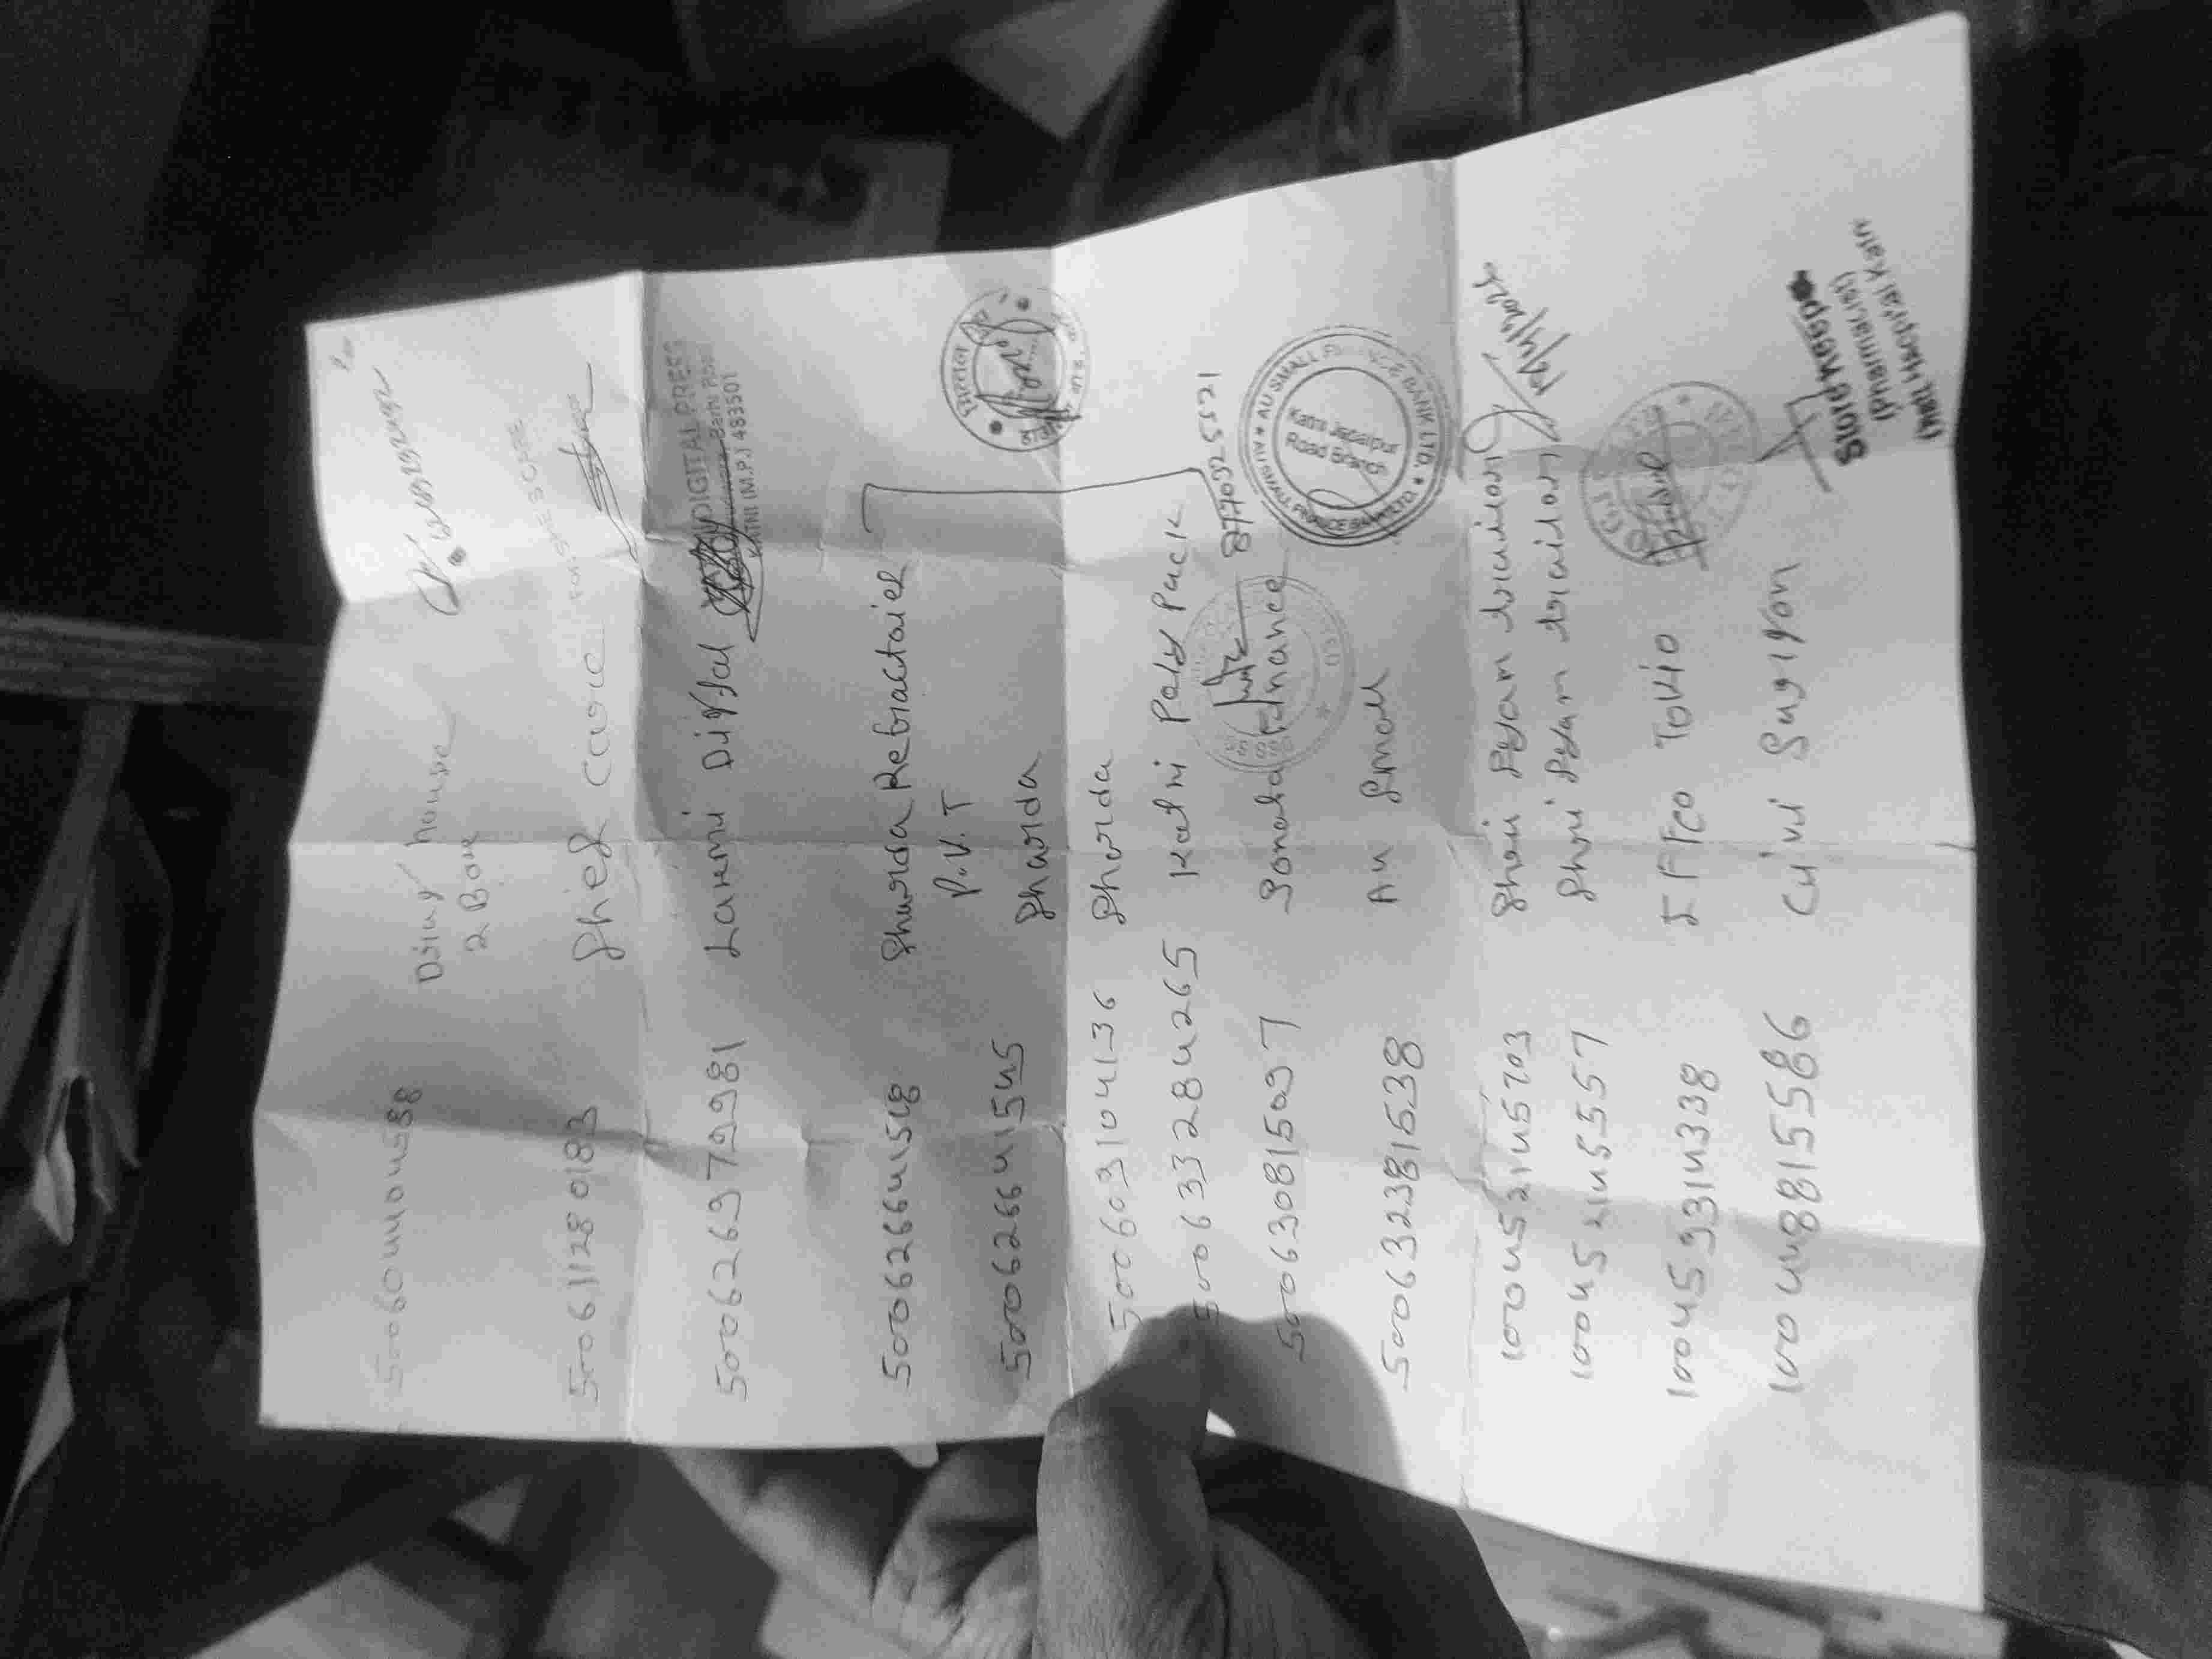 500604404588 Drug house
2 Box
500611280183 Shief Care
500626979981 Laxmi Digital
DIGITAL PRESS
Barhi Road
KATNI (M.P.) 483501
500626641518 Sharda Refractories
P.V.T
500626641545 Sharda
500609104136 Sharda
500633284265 Katni Poly Pack
8770325521
500630815097 Sonata Finance
500632381638 Au Small
AU SMALL FINANCE BANK LTD. ★ AU SMALL FINANCE BANK LTD. ★
Katni Jabalpur
Road Branch
100452145703 Shri Pyam
100452145557 Shri Pyam
100453314338 IFFCO TOKIO
100448815586 Civil Surgion
Store Keeper
(Pharmacist)
Distt. Hospital Katni